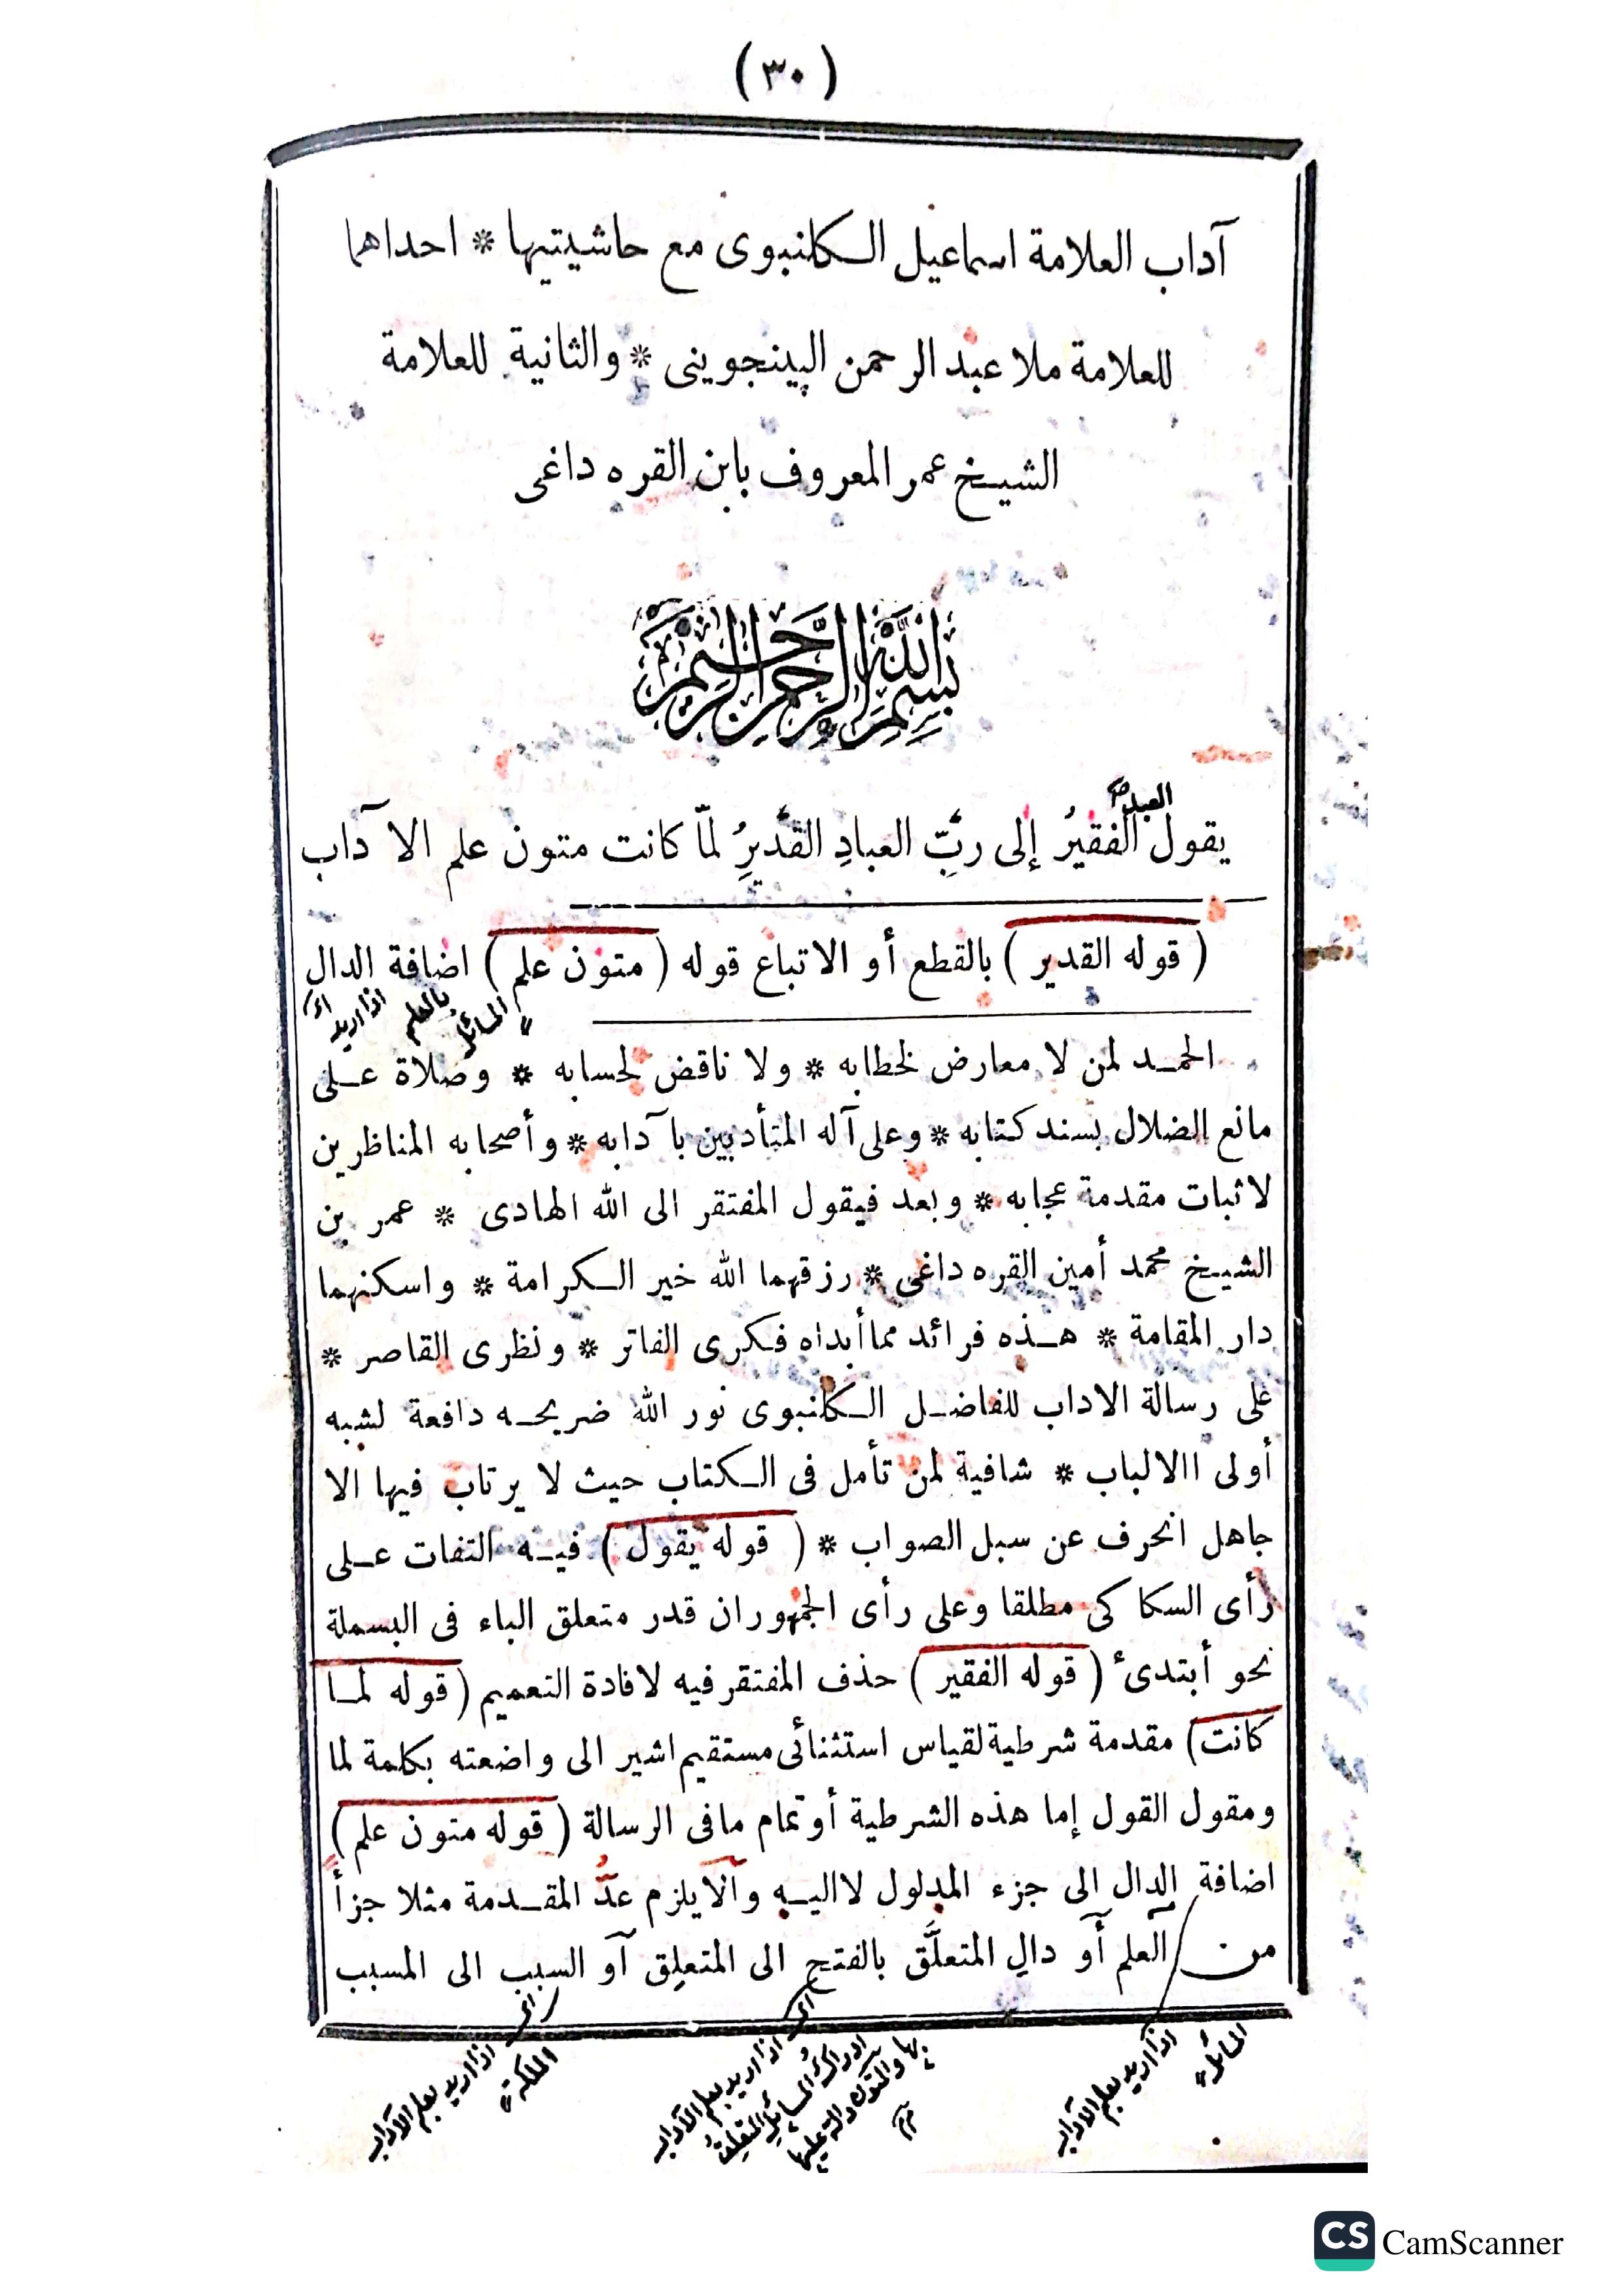 (٣٠)
آداب العلامة اسماعيل الكلنبوى مع حاشيتيها * احداهما
للعلامة ملا عبد الرحمن الپينجوينى * والثانية للعلامة
الشيخ عمر المعروف بابن القره داغى
بسم الله الرحمن الرحيم
العبد صح
يقول الفقيرُ إلى ربِّ العبادِ القديرِ لمّا كانت متون علم الآداب
( قوله القدير ) بالقطع أو الاتباع قوله ( متون علم ) اضافة الدال
اذا اريد بالعلم المسائل
الحمد لمن لا معارض لخطابه * ولا ناقض لحسابه * وصلاة على
مانع الضلال بسند كتابه * وعلى آله المتأدبين بآدابه * وأصحابه المناظرين
لاثبات مقدمة عجابه * وبعد فيقول المفتقر الى الله الهادى * عمر بن
الشيخ محمد أمين القره داغى * رزقهما الله خير الكرامة * واسكنهما
دار المقامة * هذه فرائد مما أبداه فكرى الفاتر * ونظرى القاصر *
على رسالة الاداب للفاضل الكلنبوى نور الله ضريحه دافعة لشبه
أولى االالباب * شافية لمن تأمل فى الكتاب حيث لا يرتاب فيها الا
جاهل انحرف عن سبل الصواب * ( قوله يقول ) فيه التفات على
رأى السكاكى مطلقا وعلى رأى الجمهور ان قدر متعلق الباء فى البسملة
نحو أبتدىء ( قوله الفقير ) حذف المفتقر فيه لافادة التعميم ( قوله لما
كانت ) مقدمة شرطية لقياس استثنائى مستقيم اشير الى واضعته بكلمة لما
ومقول القول إما هذه الشرطية أو تمام مافى الرسالة ( قوله متون علم )
اضافة الدال الى جزء المدلول لااليه والّا يلزم عدُّ المقدمة مثلا جزأ
من العلم أو دالِ المتعلَّق بالفتح الى المتعلِق أو السبب الى المسبب
اذا اريد بعلم الآداب المسائل
اى اذا اريد بعلم الآداب
ادراك المسائل المتعلق
بها والمتون دالة عليها
اى اذا اريد بعلم الآداب
الملكة
CS CamScanner